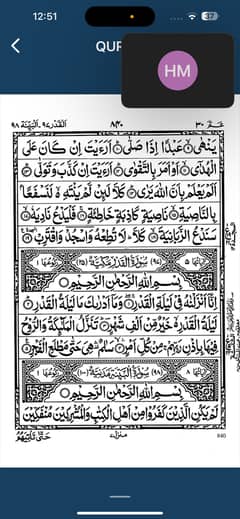 12:51
37
QUR
HM
القدر ٩٧، البينة ٩٨
٨٣٠
عم ٣٠
يَنْهٰى ۙ عَبْدًا اِذَا صَلّٰى ؕ اَرَءَيْتَ اِنْ كَانَ عَلَى
الْهُدٰٓى ۙ اَوْ اَمَرَ بِالتَّقْوٰى ؕ اَرَءَيْتَ اِنْ كَذَّبَ وَتَوَلّٰى ؕ
اَلَمْ يَعْلَمْ بِاَنَّ اللّٰهَ يَرٰى ؕ كَلَّا لَئِنْ لَّمْ يَنْتَهِ ۙ۬ لَنَسْفَعًۢا
بِالنَّاصِيَةِ ۙ نَاصِيَةٍ كَاذِبَةٍ خَاطِئَةٍ ۚ فَلْيَدْعُ نَادِيَهٗ ۙ
سَنَدْعُ الزَّبَانِيَةَ ۙ كَلَّا ؕ لَا تُطِعْهُ وَاسْجُدْ وَاقْتَرِبْ
اٰيَاتُهَا ٥ (٩٧) سُوْرَةُ الْقَدْرِ مَكِّيَّةٌ (٢٥) رُكُوْعُهَا ١
بِسْمِ اللّٰهِ الرَّحْمٰنِ الرَّحِيْمِ
اِنَّآ اَنْزَلْنٰهُ فِيْ لَيْلَةِ الْقَدْرِ ۚۖ وَمَآ اَدْرٰىكَ مَا لَيْلَةُ الْقَدْرِ ؕ
لَيْلَةُ الْقَدْرِ ۙ۬ خَيْرٌ مِّنْ اَلْفِ شَهْرٍ ؕ تَنَزَّلُ الْمَلٰٓئِكَةُ وَالرُّوْحُ
فِيْهَا بِاِذْنِ رَبِّهِمْ ۚ مِنْ كُلِّ اَمْرٍ ۙ سَلٰمٌ ۛ هِيَ حَتّٰى مَطْلَعِ الْفَجْرِ
اٰيَاتُهَا ٨ (٩٨) سُوْرَةُ الْبَيِّنَةِ مَدَنِيَّةٌ (١٠٠) رُكُوْعُهَا ١
بِسْمِ اللّٰهِ الرَّحْمٰنِ الرَّحِيْمِ
لَمْ يَكُنِ الَّذِيْنَ كَفَرُوْا مِنْ اَهْلِ الْكِتٰبِ وَالْمُشْرِكِيْنَ مُنْفَكِّيْنَ
منزل ٧
حَتّٰى تَاْتِيَهُمُ